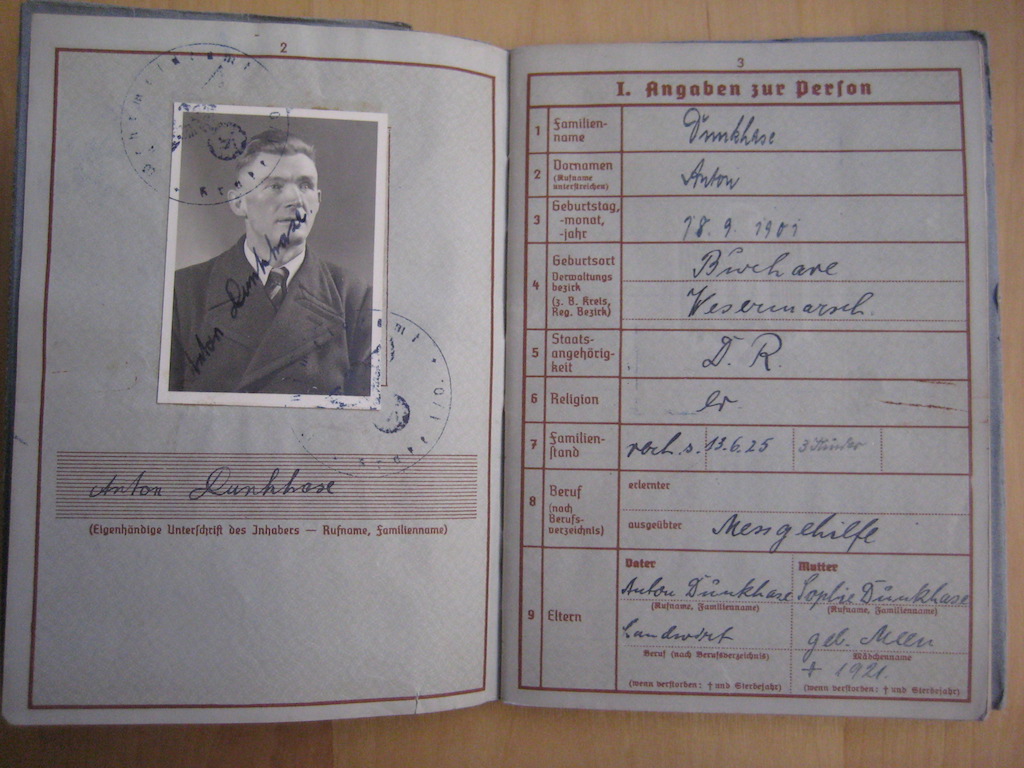 2
Anton Dunkhase
Anton Dunkhase
(Eigenhändige Unterschrift des Inhabers — Rufname, Familienname)
3
I. Angaben zur Person
1 Familien-
name
Dunkhase
2 Vornamen
(Rufname
unterstreichen)
Anton
3 Geburtstag,
-monat,
-jahr
18. 9. 1901
4 Geburtsort
Verwaltungs
bezirk
(z. B. Kreis,
Reg. Bezirk)
Wesermarsch
5 Staats-
angehörig-
keit
D. R.
6 Religion
7 Familien-
stand
13.6.25 3 Kinder
8 Beruf
(nach
Berufs-
verzeichnis)
erlernter
ausgeübter Messgehilfe
9 Eltern
Vater
Anton Dunkhase
(Rufname, Familienname)
Landwirt
Beruf (nach Berufsverzeichnis)
(wenn verstorben: † und Sterbejahr)
Mutter
Sophie Dunkhase
(Rufname, Familienname)
geb.
Mädchenname
† 1921.
(wenn verstorben: † und Sterbejahr)